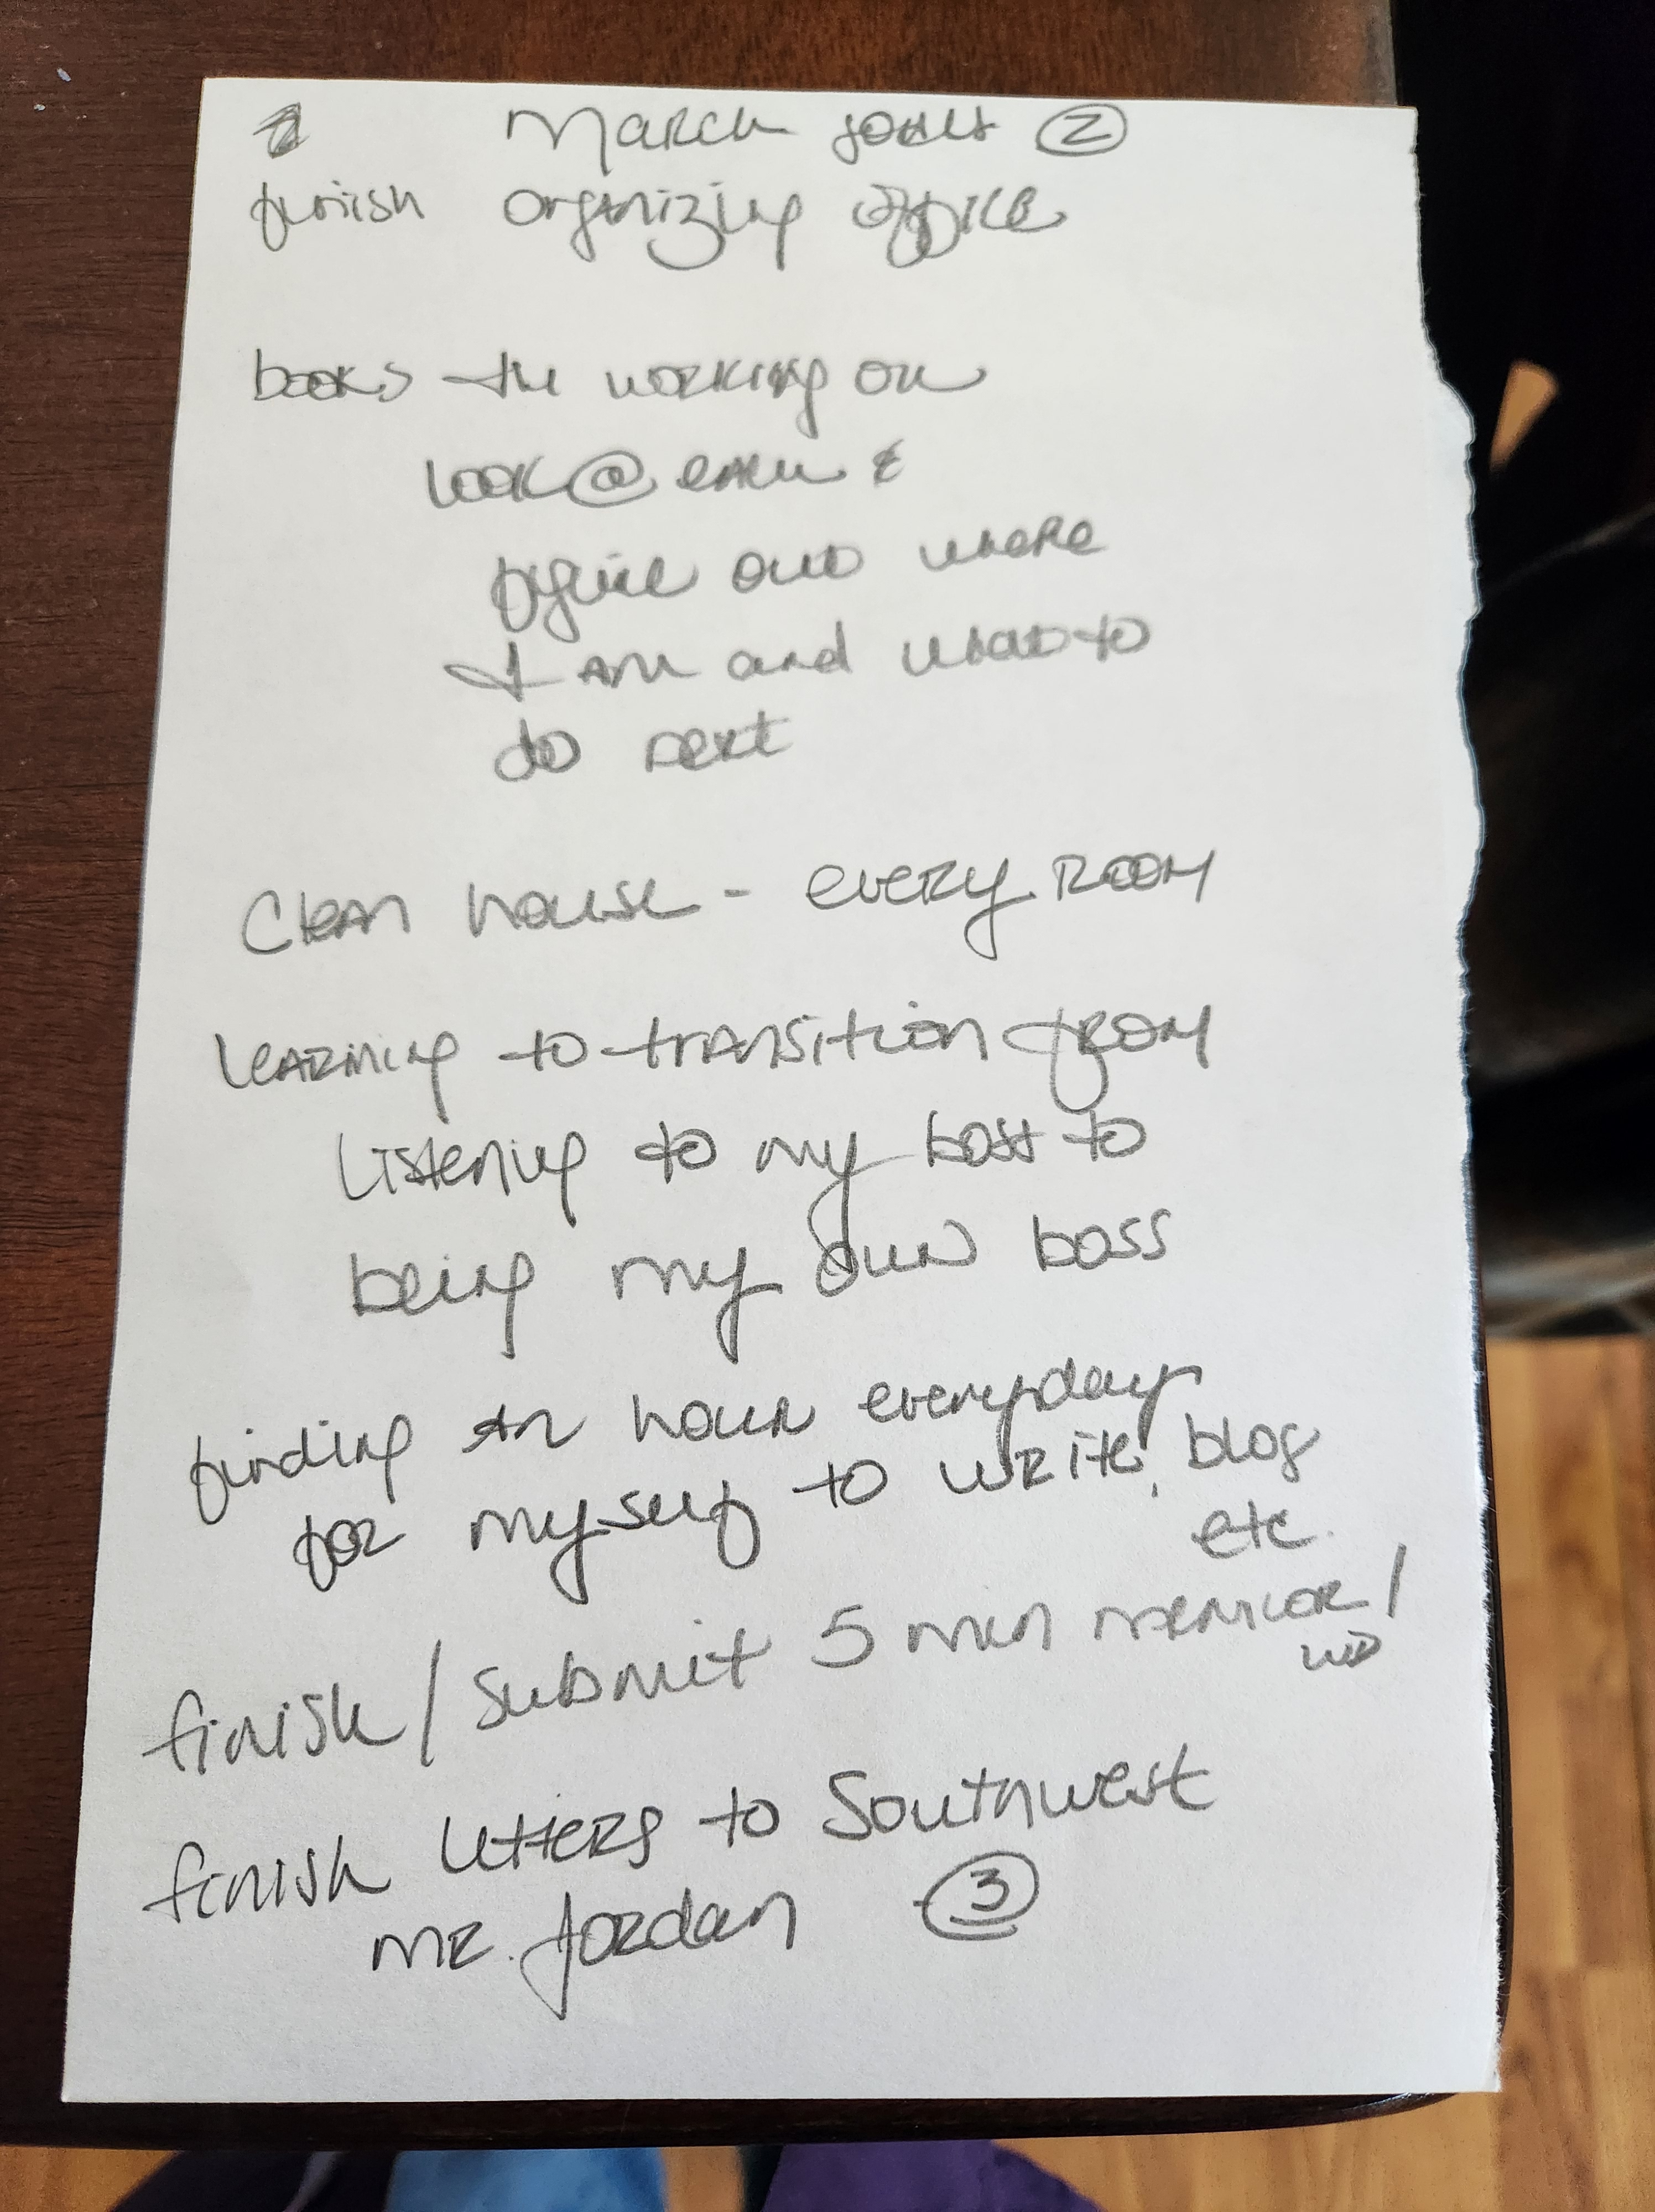 March goals ②
finish organizing office
books I'm working on
look @ each &
figure out where
I am and what to
do next
Clean house - every room
learning to transition from
listening to my boss to
being my own boss
finding an hour everyday
for myself to write, blog
etc.
finish / submit 5 min memior /
finish letters to Southwest
Mr. Jordan ③